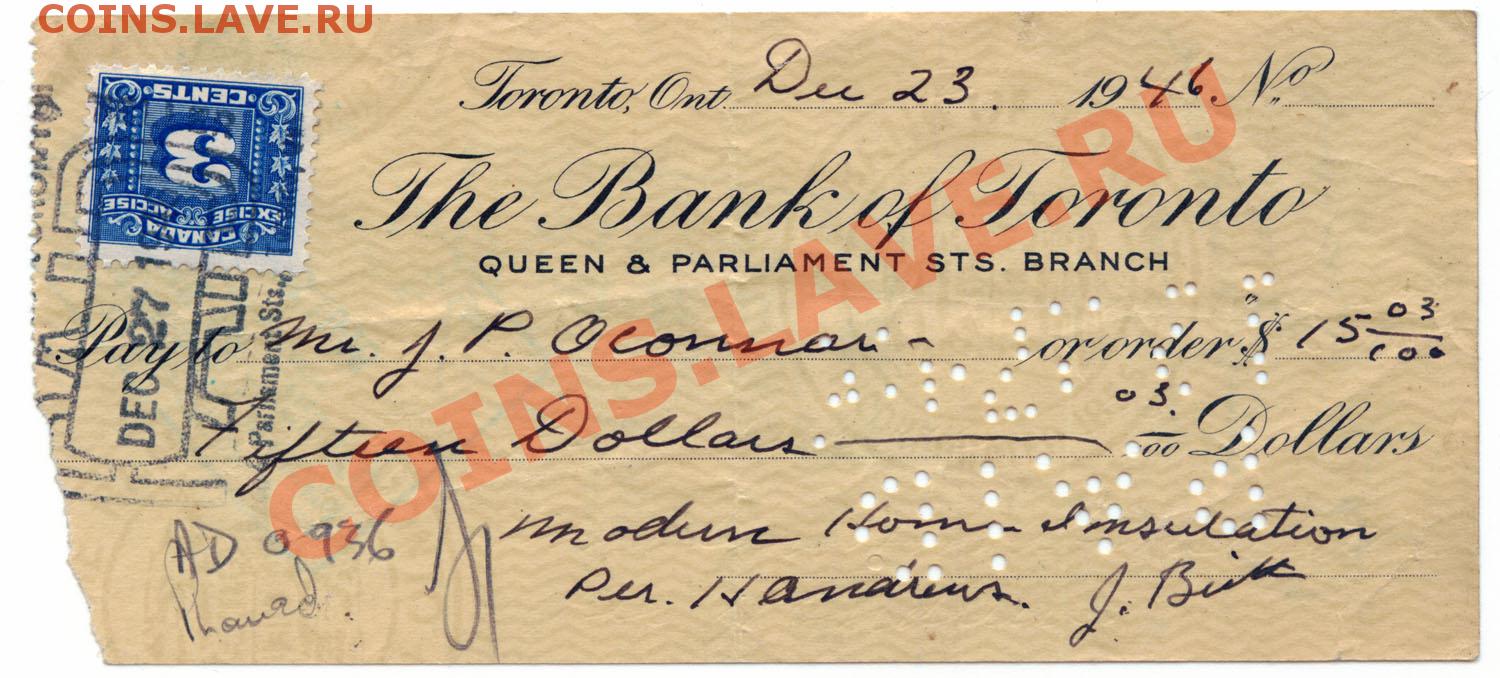 COINS.LAVE.RU
CENTS
3
3
EXCISE ACCISE
CANADA
Toronto, Ont Dec 23. 1946 No.
The Bank of Toronto
QUEEN & PARLIAMENT STS. BRANCH
Pay to Mr. J. P. Oconnor - or order $ 15 03/100
Fifteen Dollars 03./00 Dollars
Modern Home Insulation
Per. H Andrews. J. Birtt
AD 0936
DEC 27
Parliament Sts.,
COINS.LAVE.RU